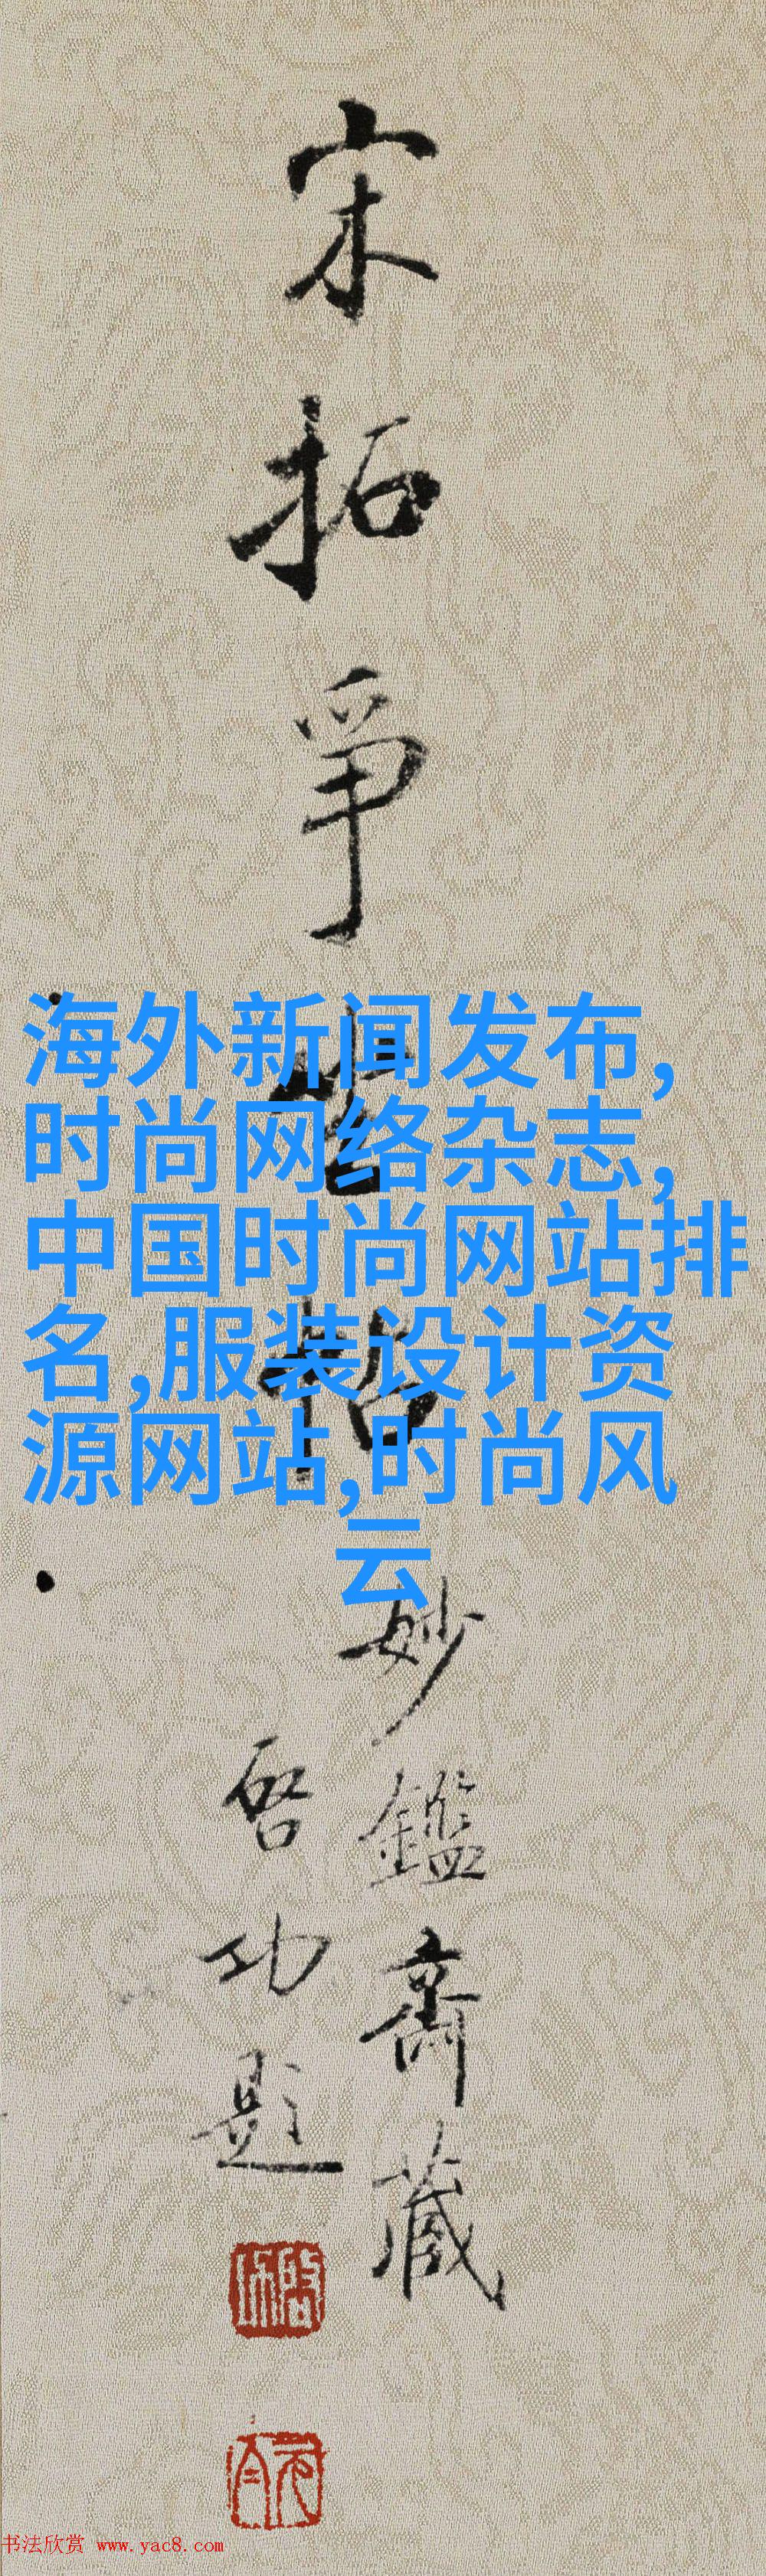 宋拓争坐帖
海外新闻发布,
时尚网络杂志,
中国时尚网站排
名,服装设计资
源网站,时尚风
云
妙鑑斋藏
启功题
书法欣赏 www.yac8.com